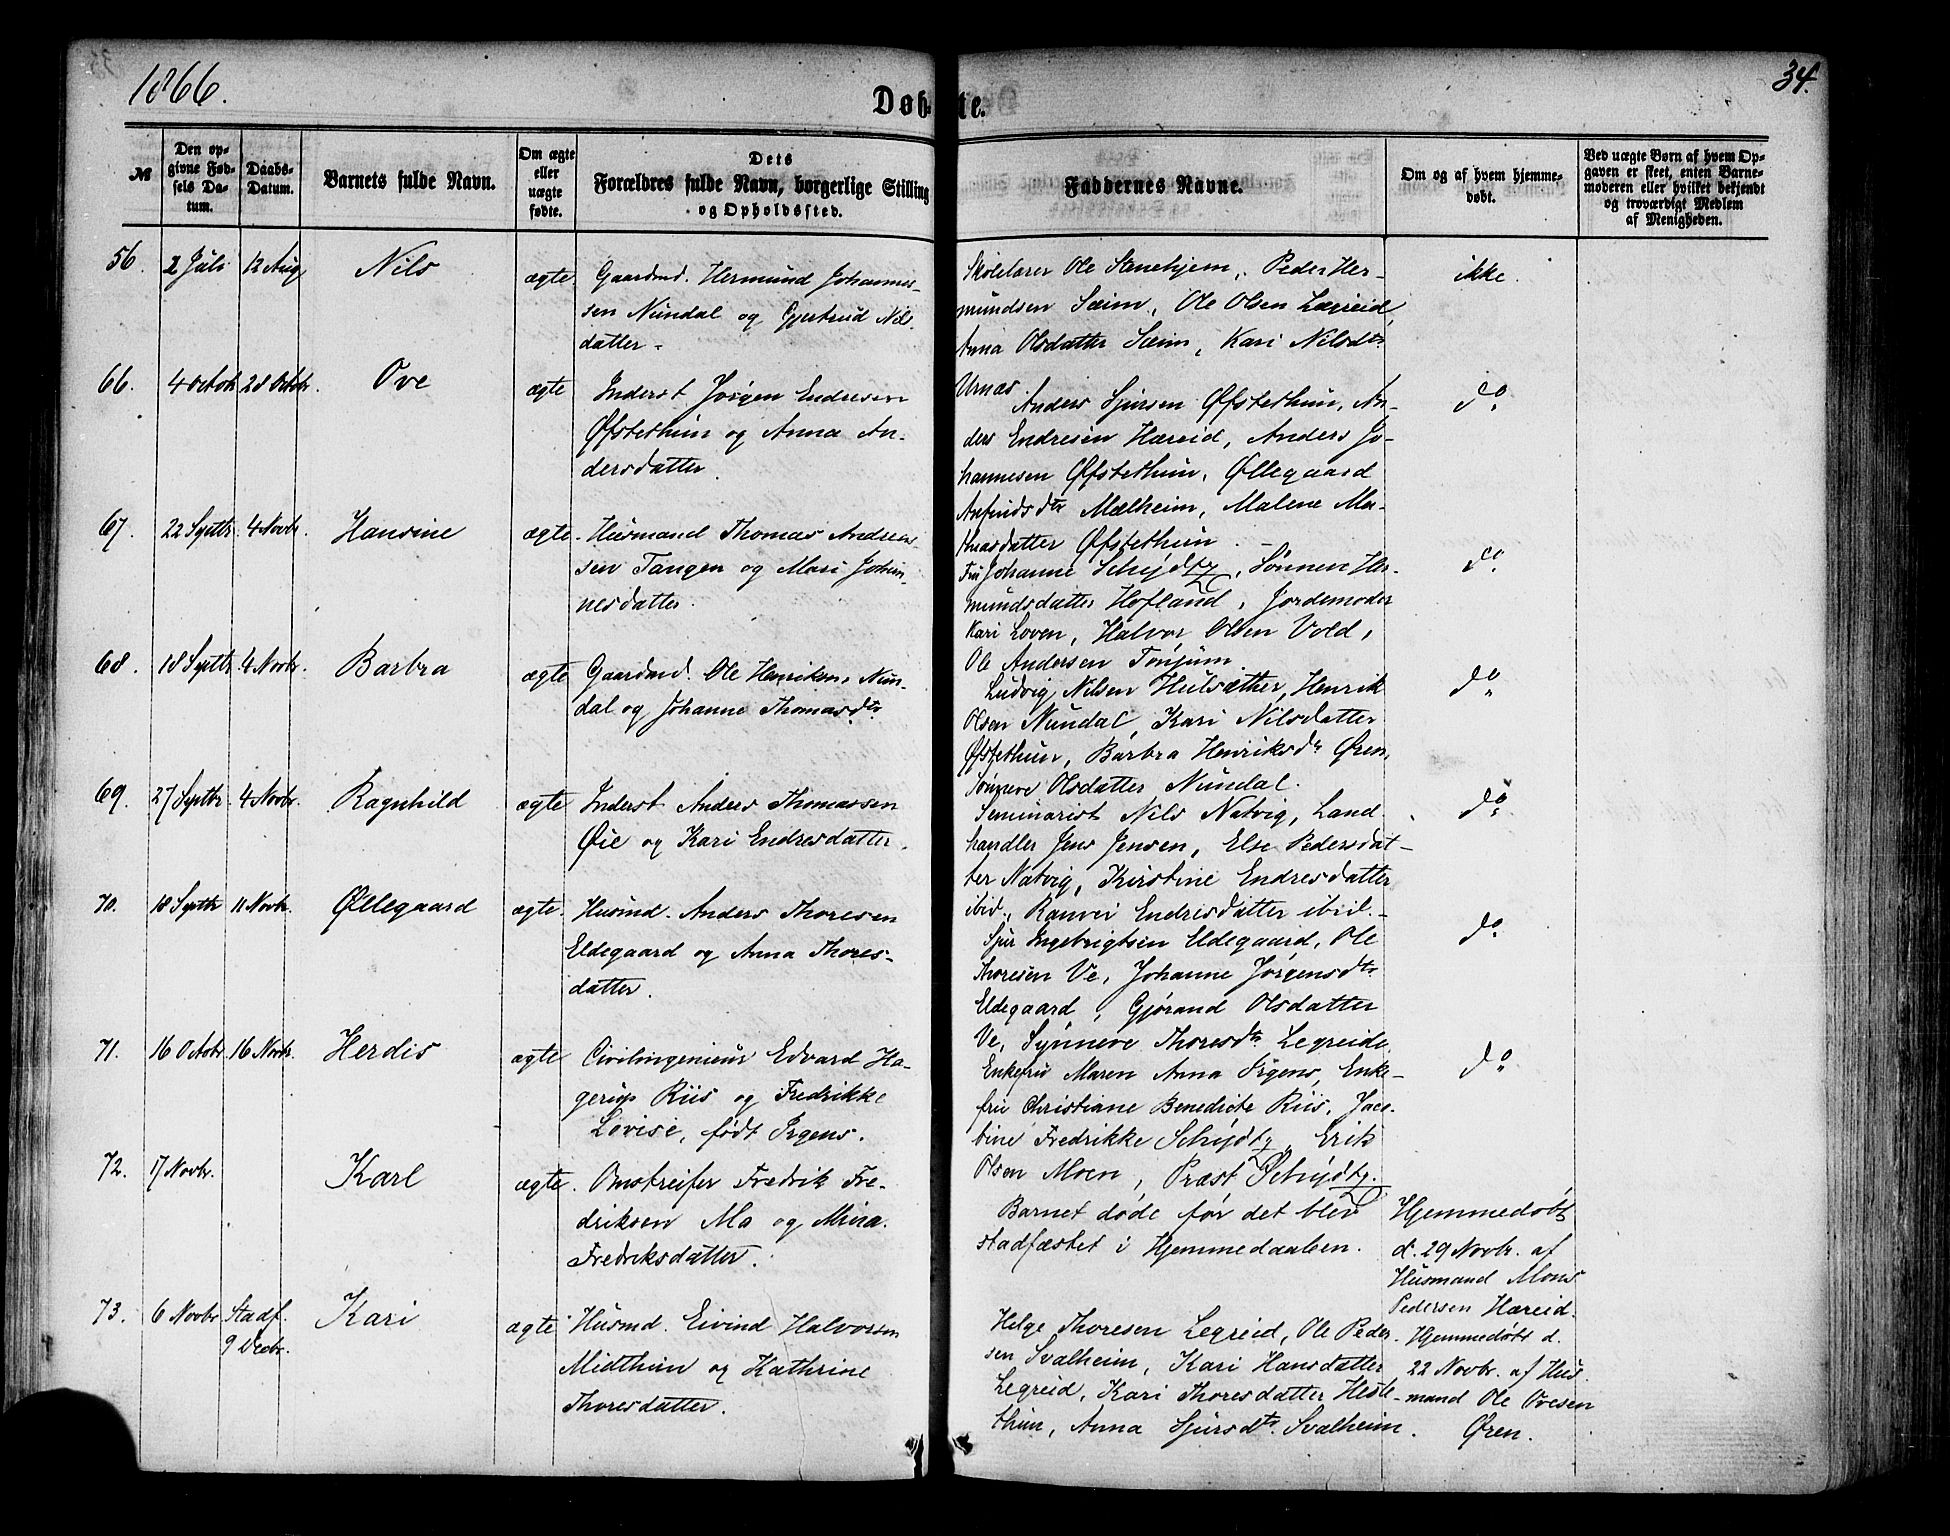 1866.
34.
Døbte.
№
Den opgivne Fødsels Datum.
Daabs-Datum.
Barnets fulde Navn.
Om ægte eller uægte fødte.
Dets Forældres fulde Navn, borgerlige Stilling og Opholdssted.
Faddernes Navne.
Om og af hvem hjemmedøbt.
Ved uægte Børn af hvem Opgaven er skeet, enten Barnemoderen eller hvilket bekjendt og troværdigt Medlem af Menigheden.
56. 2 Juli 12 Aug Nils ægte. Gaardmd. Hermund Johannes-
sen Nundal og Gjertrud Nils
datter.
Skolelærer Ole Stenehjem, Peder Her-
mundsen Sæim, Ole Olsen Lægreid,
Anna Olsdatter Sæim, Kari Nilsdtr
Urnæs
ikke.
66. 4 Octobr 28 Octobr. Ove ægte Inderst Jørgen Endresen
Øfstethun og Anna An-
dersdatter.
Anders Sjursen Øfstethun, An-
ders Endresen Hæreid, Anders Jo-
hannesen Øfstethun, Øllegaard
Anfindsdtr Mælheim, Malene Ma-
thiasdatter Øfstethun.
do
67. 22 Septbr. 4 Novbr. Hansine ægte. Husmand Thomas Andrea-
sen Tangen og Mari Johan-
nesdatter.
Fru Johanne Schydtz, Sønnev Her-
mundsdatter Hofland, Jordemoder
Kari Loven, Halvor Olsen Vold,
Ole Andersen Tønjum.
do
68. 18 Septbr 4 Novbr. Barbra ægte Gaardmd. Ole Henriksen Nun-
dal og Johanne Thomasdtr
Ludvig Nilsen Hulsæther, Henrik
Olsen Nundal, Kari Nilsdatter
Øfstethun, Barbra Henriksdtr Øren,
Sønneve Olsdatter Nundal.
do
69. 27 Septbr. 4 Novbr. Ragnhild ægte Inderst Anders Thomassen
Øie og Kari Endresdatter.
Seminarist Nils Natvig, Land
handler Jens Jensen, Else Pedersdat-
ter Natvig, Kirstine Endresdatter
ibid., Ranvei Endrisdatter ibid.
do
70. 18 Septbr 11 Novbr. Øllegaard ægte. Husmd. Anders Thoresen
Eldegaard og Anna Thores-
datter.
Sjur Ingebrigtsen Eldegaard, Ole
Thoresen Ve, Johanne Jørgensdtr
Eldegaard, Gjørand Olsdatter
Ve, Synneve Thoresdtr Legreid.
do
71. 16 Octobr. 16 Novbr. Herdis ægte Civilingenieur Edvard Ha-
gerup Riis og Fredrikke
Lovise, født Irgens.
Enkefru Maren Anna Irgens, Enke-
fru Christiane Benedicte Riis, Jaco-
bine Fredrikke Schydtz, Erik
Olsen Moen, Præst Schydtz.
do
72. 17 Novbr. Karl ægte. Omstreifer Fredrik Fre-
driksen Mo og Mina
Fredriksdatter.
Barnet døde før det blev
stadfæstet i Hjemmedaaben.
Hjemmedøbt
d. 29 Novbr. af
Husmand Mons
Pedersen Hæreid.
73. 6 Novbr Stadf. 9 Decbr. Kari ægte Husmd. Eivind Halvorsen
Midthun og Kathrine
Thoresdatter.
Helge Thoresen Legreid, Ole Peder-
sen Svalheim, Kari Hansdatter
Legreid, Kari Thoresdatter Heste-
thun, Anna Sjursdtr. Svalheim.
Hjemmedøbt d.
22 Novbr. af Hus
mand Ole Ovesen
Øren.